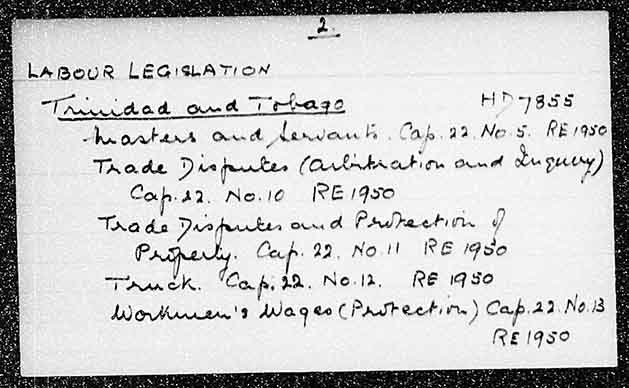 2.
LABOUR LEGISLATION
Trinidad and Tobago HD 7855
Masters and Servants. Cap. 22. No. 5. RE 1950
Trade Disputes (Arbitration and Inquiry)
Cap. 22. No. 10 RE 1950
Trade Disputes and Protection of
Property. Cap. 22. No. 11 RE 1950
Truck. Cap. 22. No. 12. RE 1950
Workmen's Wages (Protection) Cap. 22. No. 13
RE 1950